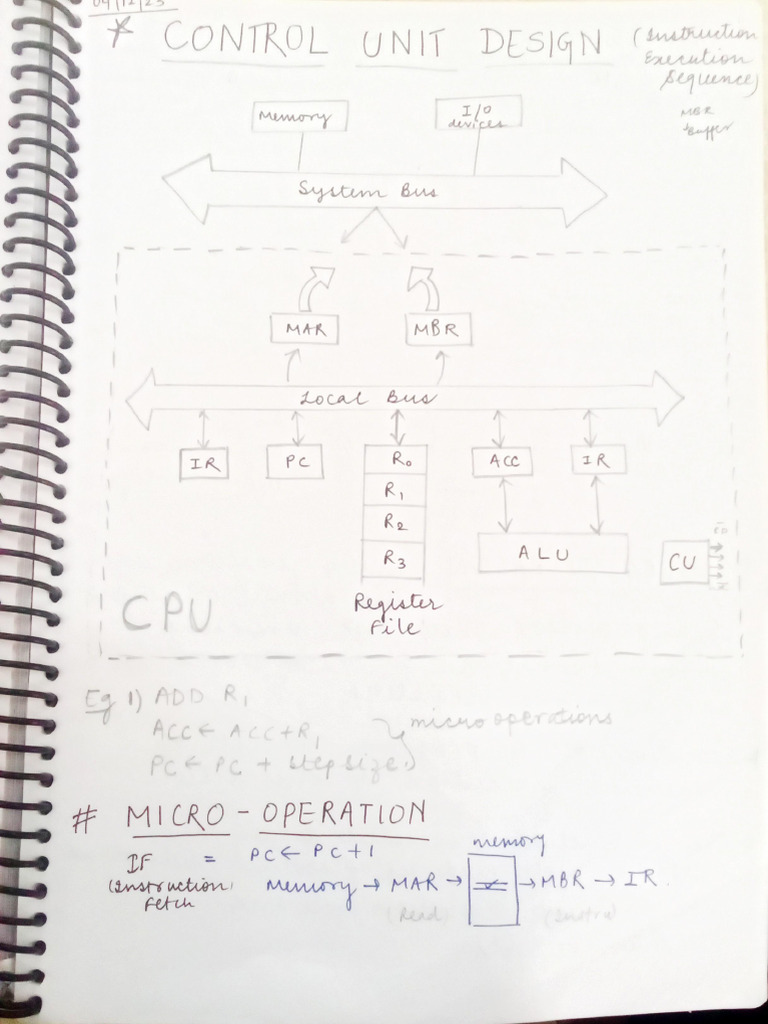 04/12/23
* CONTROL UNIT DESIGN (Instruction
Execution
Sequence)
MBR
Buffer
Memory
I/O
devices
System Bus
MAR
MBR
Local Bus
IR
PC
R0
ACC
IR
R1
R2
R3
ALU
CU
CPU
Register
File
Eg 1) ADD R1
ACC ← ACC + R1
micro operations
PC ← PC + step size
# MICRO - OPERATION
memory
IF = PC ← PC + 1
(Instruction
Fetch
Memory → MAR → → MBR → IR.
(Read)